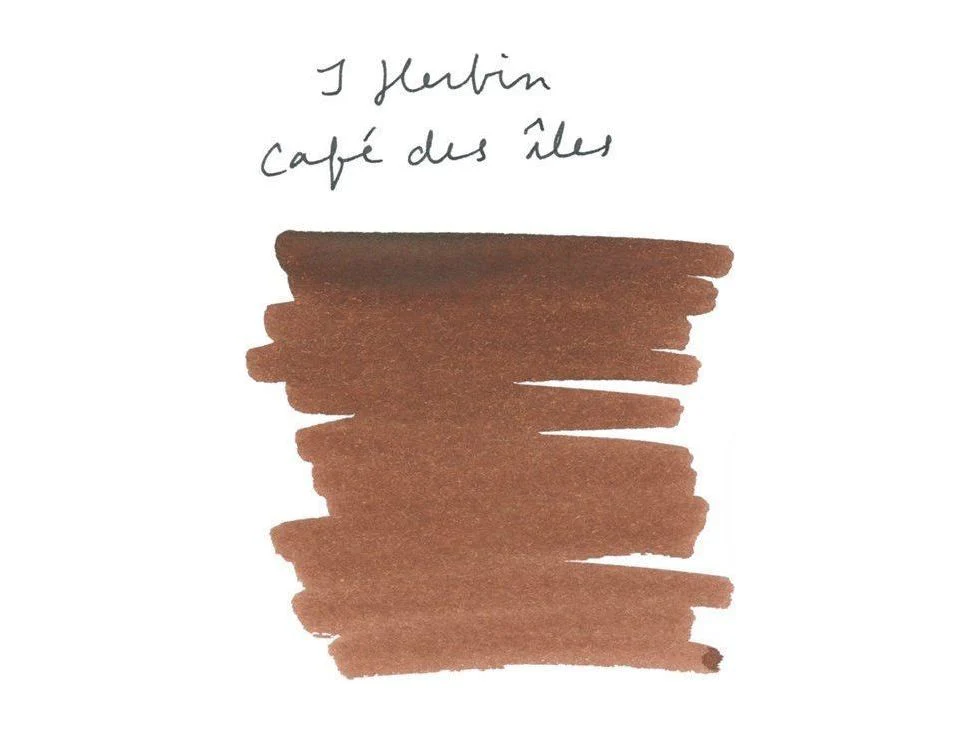 J Herbin
Café des îles